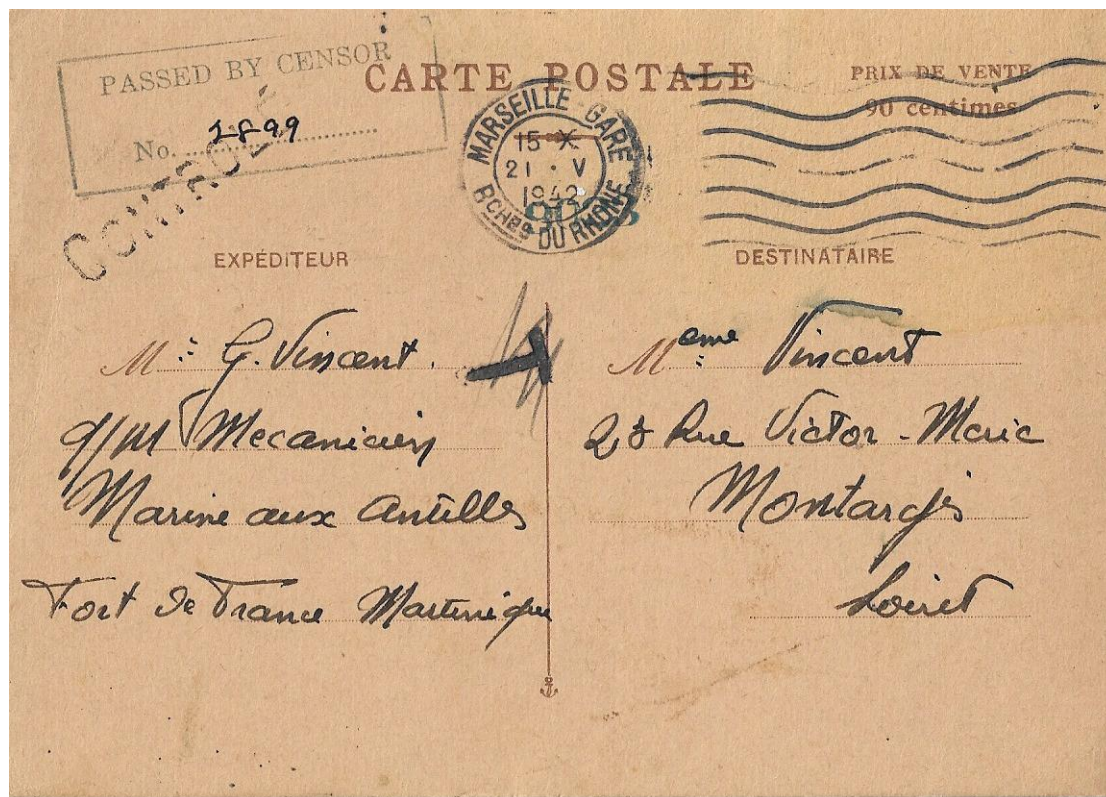 PASSED BY CENSOR
No. 1899
CONTROLE
CARTE POSTALE
PRIX DE VENTE
90 centimes
MARSEILLE-GARE
15
21 · V
1942
BCHES DU RHONE
EXPÉDITEUR
M.r G. Vincent.
q/m Mecanicien
Marine aux Antilles
Fort de France Martinique
T
DESTINATAIRE
Meme Vincent
28 Rue Victor-Marie
Montargis
Loiret